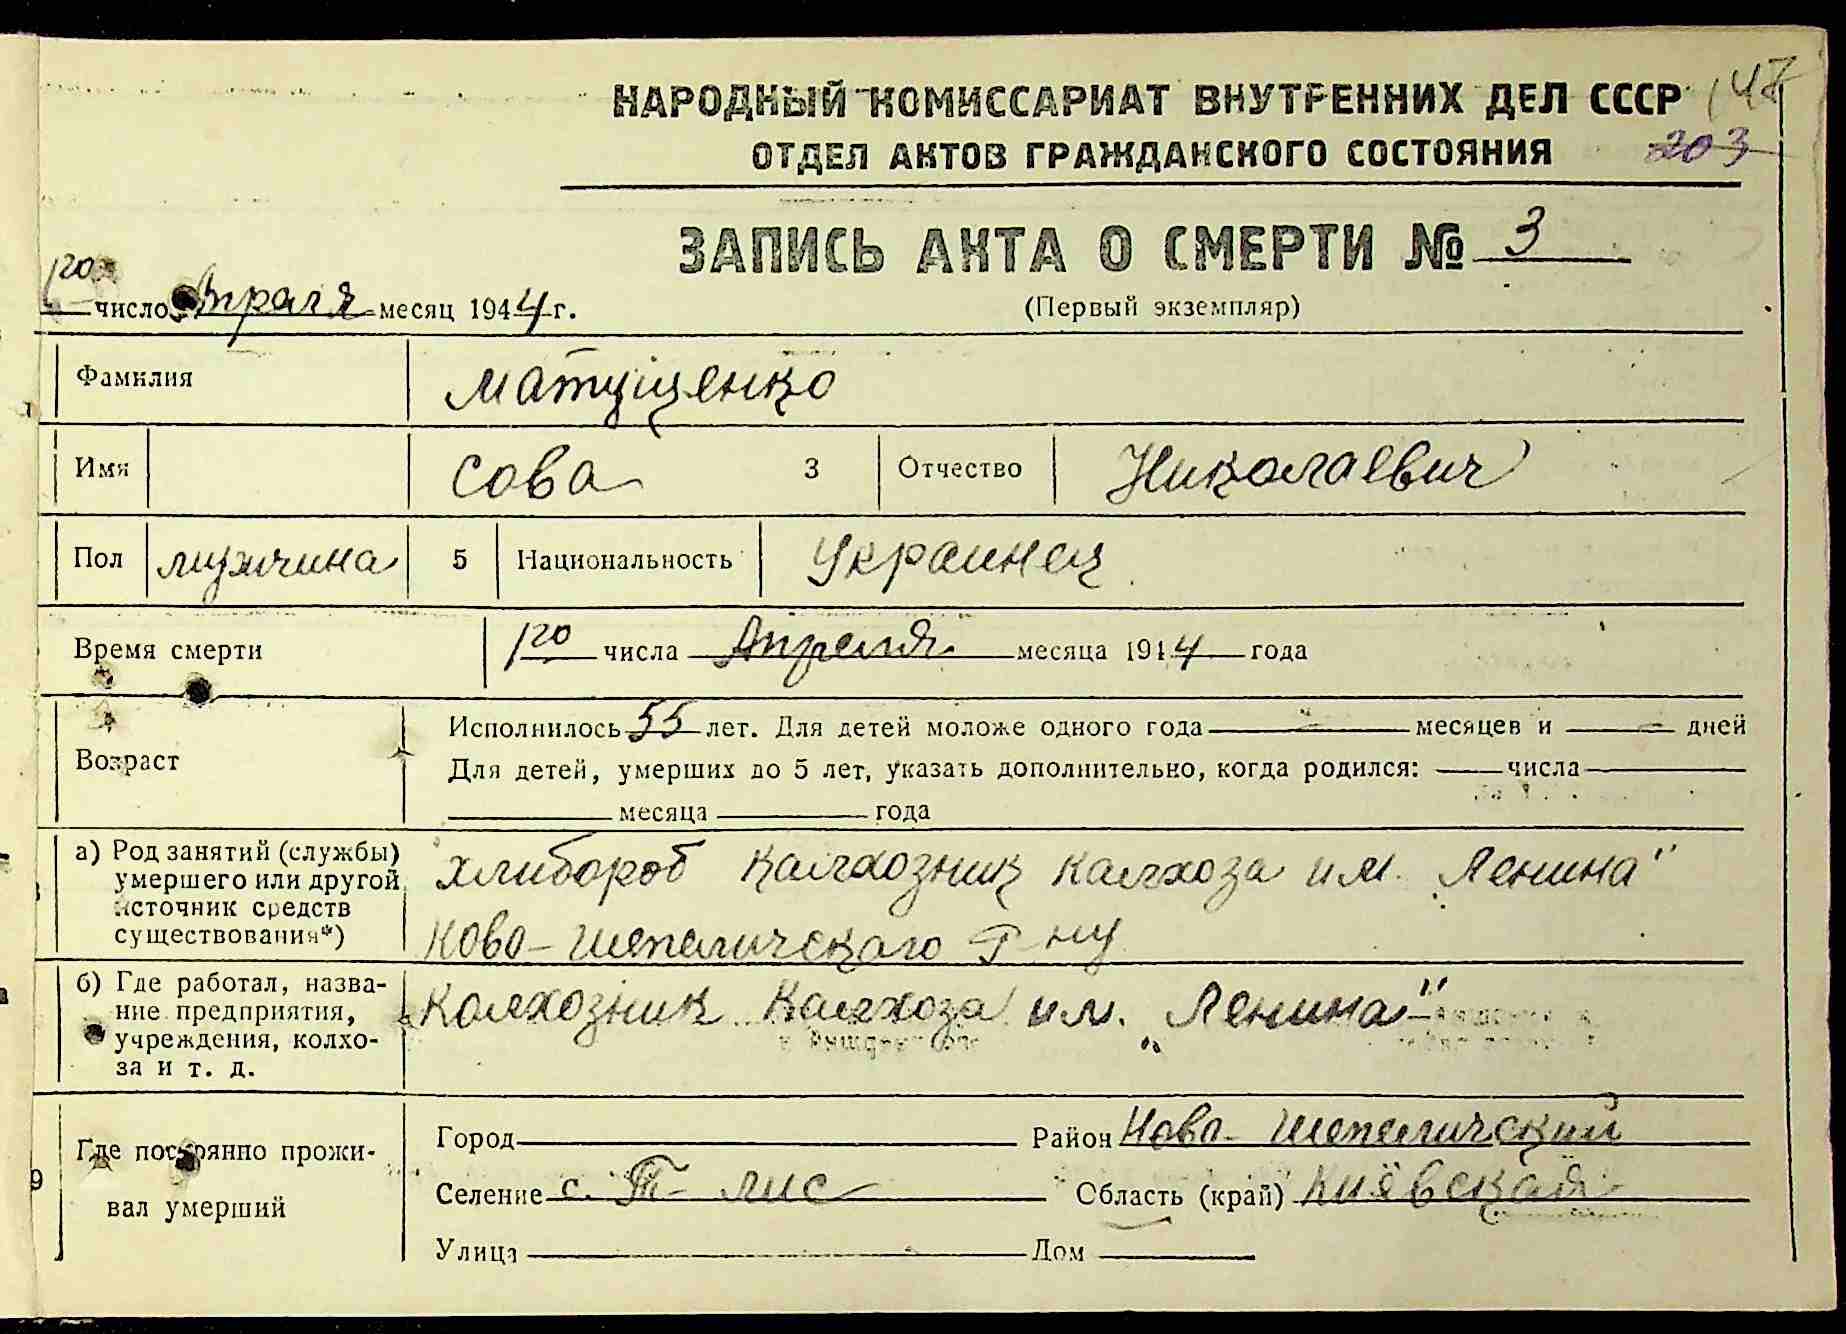 НАРОДНЫЙ КОМИССАРИАТ ВНУТРЕННИХ ДЕЛ СССР 148
ОТДЕЛ АКТОВ ГРАЖДАНСКОГО СОСТОЯНИЯ 203
ЗАПИСЬ АКТА О СМЕРТИ № 3
1го число Апреля месяц 1944 г.
(Первый экземпляр)
Фамилия Матущенко
Имя Сова 3 Отчество Николаевич
Пол мужчина 5 Национальность Украинец
Время смерти 1го числа Апреля месяца 1944 года
Возраст
Исполнилось 55 лет. Для детей моложе одного года — месяцев и — дней
Для детей, умерших до 5 лет, указать дополнительно, когда родился: числа
месяца года
а) Род занятий (службы)
умершего или другой
источник средств
существования*)
хлибороб калхозник калхоза им. „Ленина"
Ново-Шепеличского Р-ну
б) Где работал, назва-
ние предприятия,
учреждения, колхо-
за и т. д.
Колхозник Калхоза им. „Ленина"
9
Где постоянно прожи-
вал умерший
Город Район Ново-Шепеличский
Селение с. Т-лис Область (край) Киевская
Улица Дом